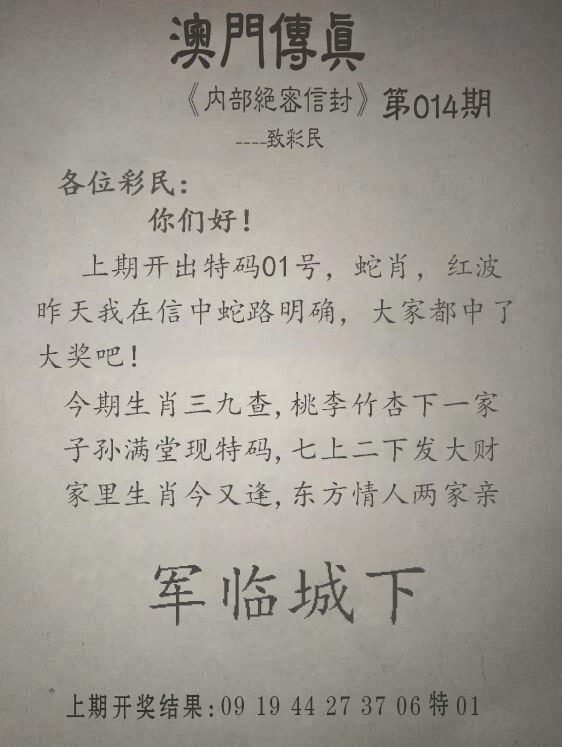 澳門傳眞
《内部絕密信封》第014期
----致彩民
各位彩民：
你们好！
上期开出特码01号，蛇肖，红波
昨天我在信中蛇路明确，大家都中了
大奖吧！
今期生肖三九查,桃李竹杏下一家
子孙满堂现特码,七上二下发大财
家里生肖今又逢,东方情人两家亲
军临城下
上期开奖结果:09 19 44 27 37 06特01